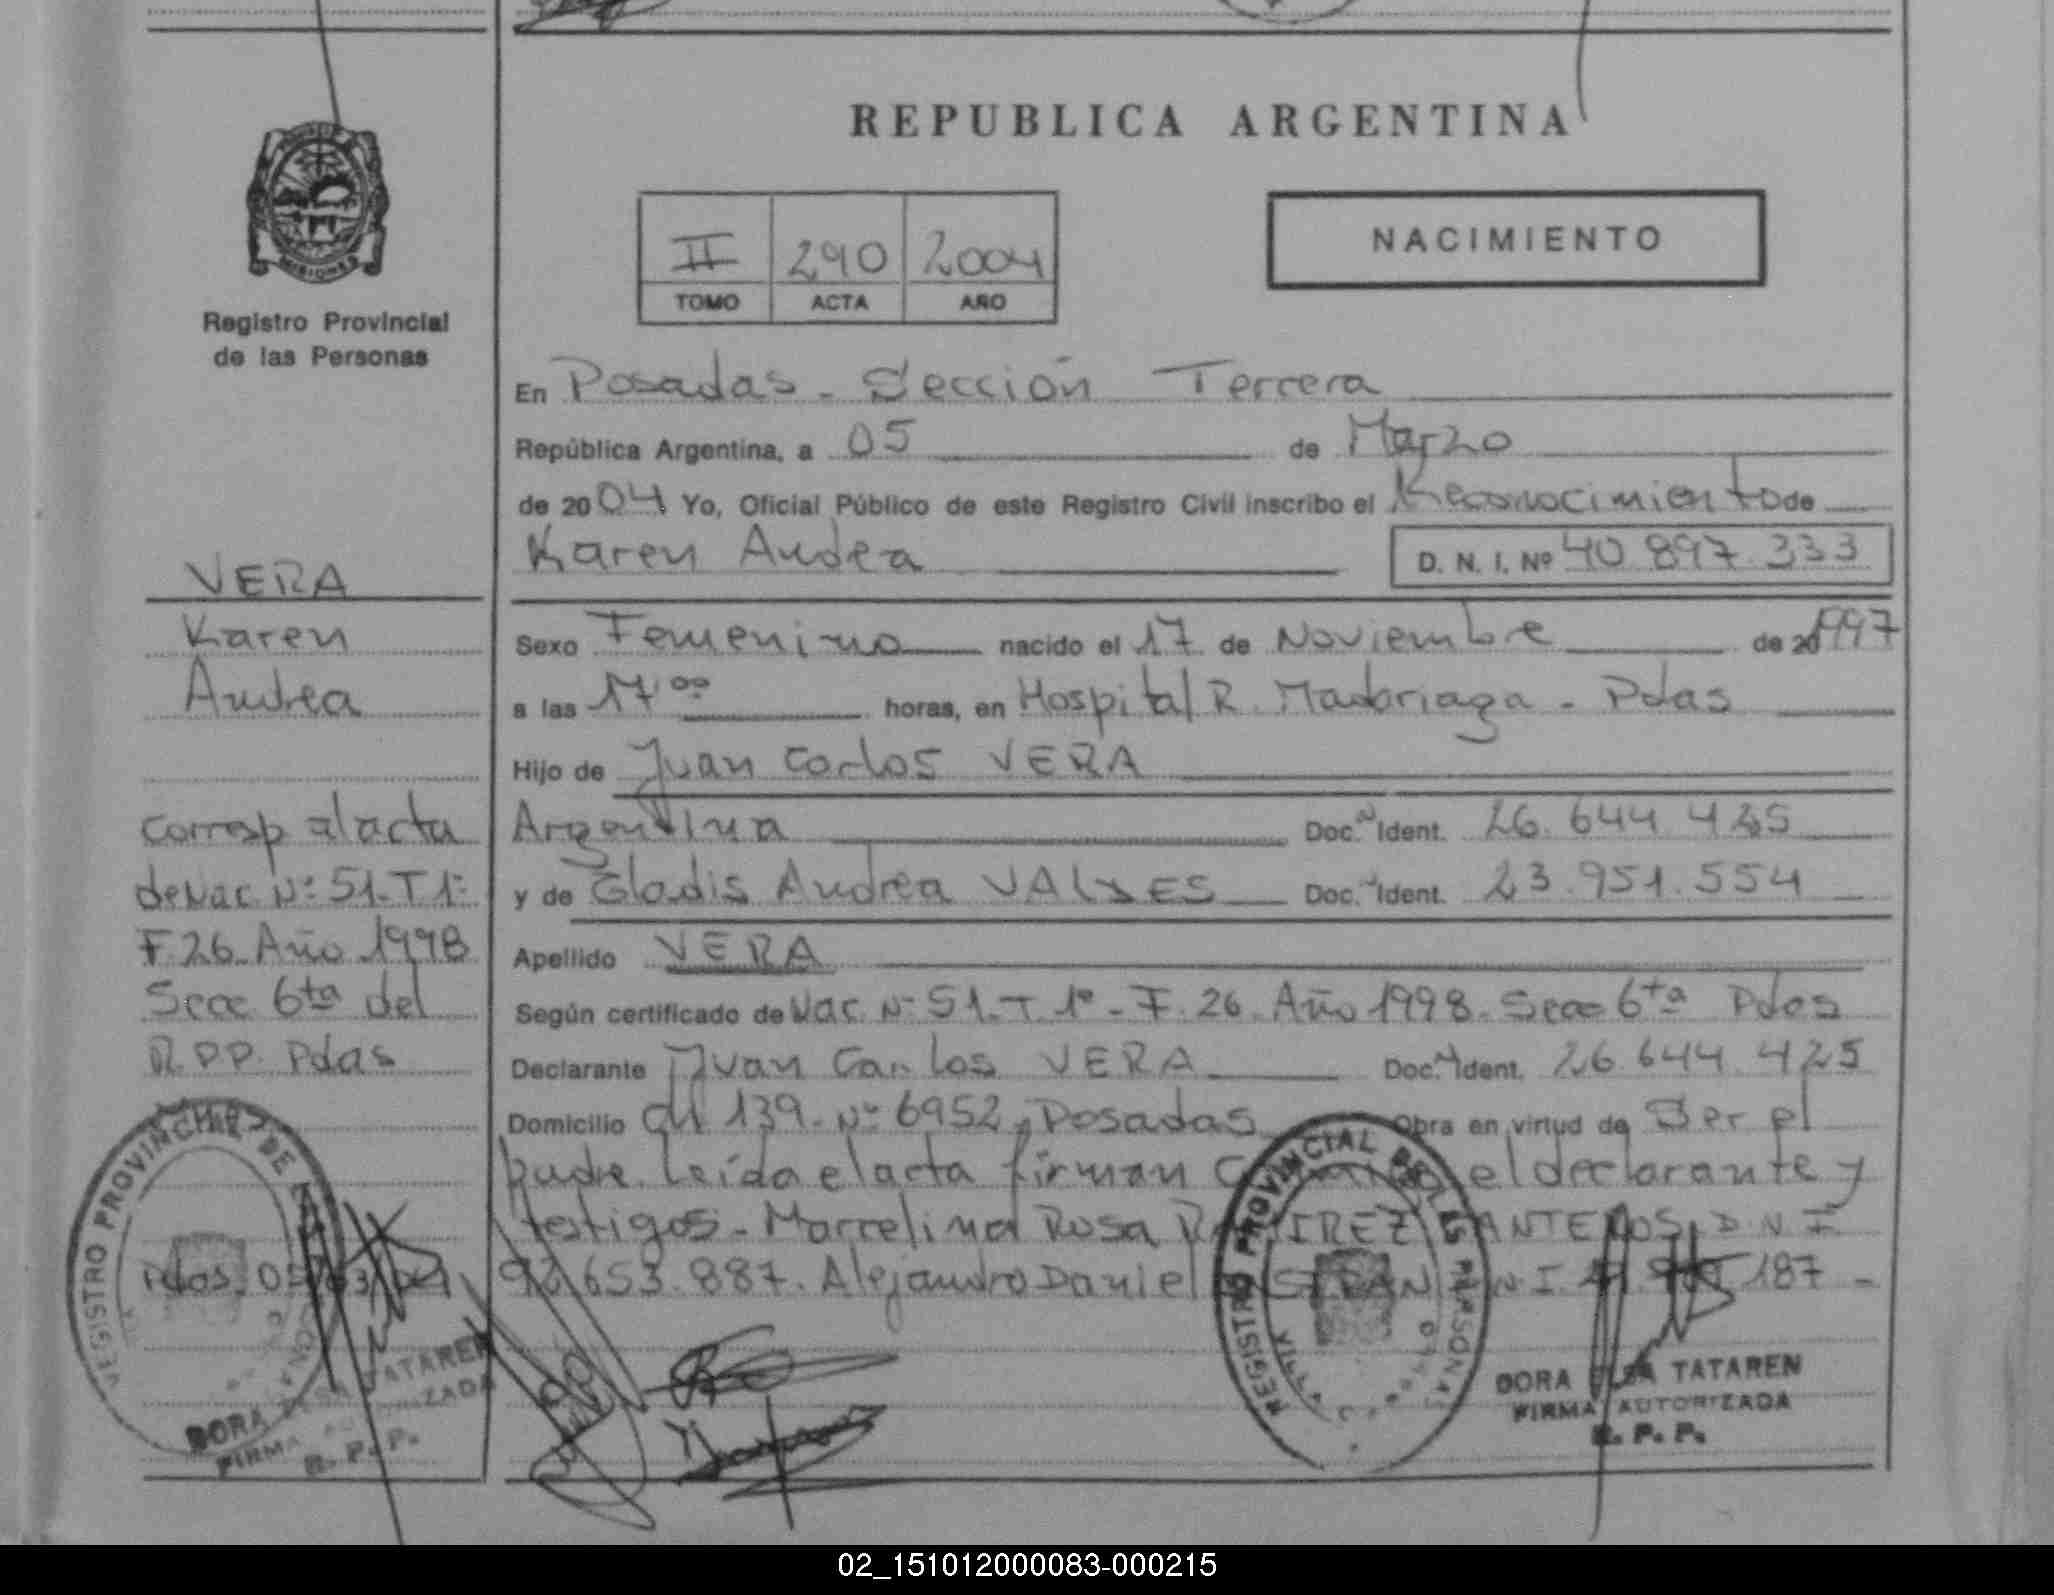 MISIONES
Registro Provincial
de las Personas
VERA
Karen
Andrea
Corresp al acta
de Nac. Nº 51-T 1º
F. 26. Año 1998
Secc 6ta del
R.P.P. Pdas
REGISTRO PROVINCIAL DE
Pdas, 05/03/04
DORA ELSA TATAREN
FIRMA AUTORIZADA
R. P. P.
REPUBLICA ARGENTINA
II 290 2004
TOMO ACTA AÑO
NACIMIENTO
En Posadas - Sección Tercera
República Argentina, a 05 de Marzo
de 2004 Yo, Oficial Público de este Registro Civil inscribo el Reconocimiento de
Karen Andrea D. N. I. Nº 40.897.333
Sexo Femenino nacido el 17 de Noviembre de 20 1997
a las 17 ºº horas, en Hospital R. Madariaga - Pdas
Hijo de Juan Carlos VERA
Argentina Doc. N Ident. 26.644.425
y de Gladis Andrea VALDES Doc. N Ident. 23.951.554
Apellido VERA
Según certificado de Nac. Nº 51-T 1º - F. 26. Año 1998. Secc 6ta Pdas
Declarante Juan Carlos VERA Doc. N Ident. 26.644.425
Domicilio CH 139. Nº 6952, Posadas Obra en virtud de Ser el
padre. Leída el acta firman el declarante y
testigos - Marcelina Rosa RAMIREZ D.N.I.
92.653.887. Alejandro Daniel D.N.I. 187 -
REGISTRO PROVINCIAL DE LAS PERSONAS
DORA ELSA TATAREN
FIRMA AUTORIZADA
R. P. P.
02_151012000083-000215